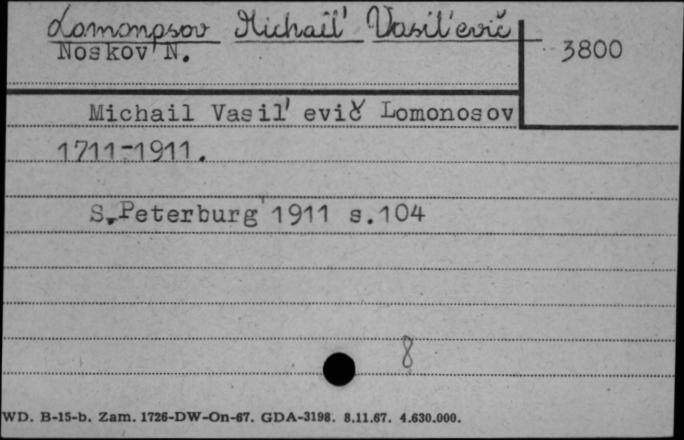 Lomonosov Michail Vasil'evič
Noskov N.
3800
Michail Vasil' evič Lomonosov
1711-1911.
S.Peterburg 1911 s.104
8
WD. B-15-b. Zam. 1726-DW-On-67. GDA-3198. 8.11.67. 4.630.000.